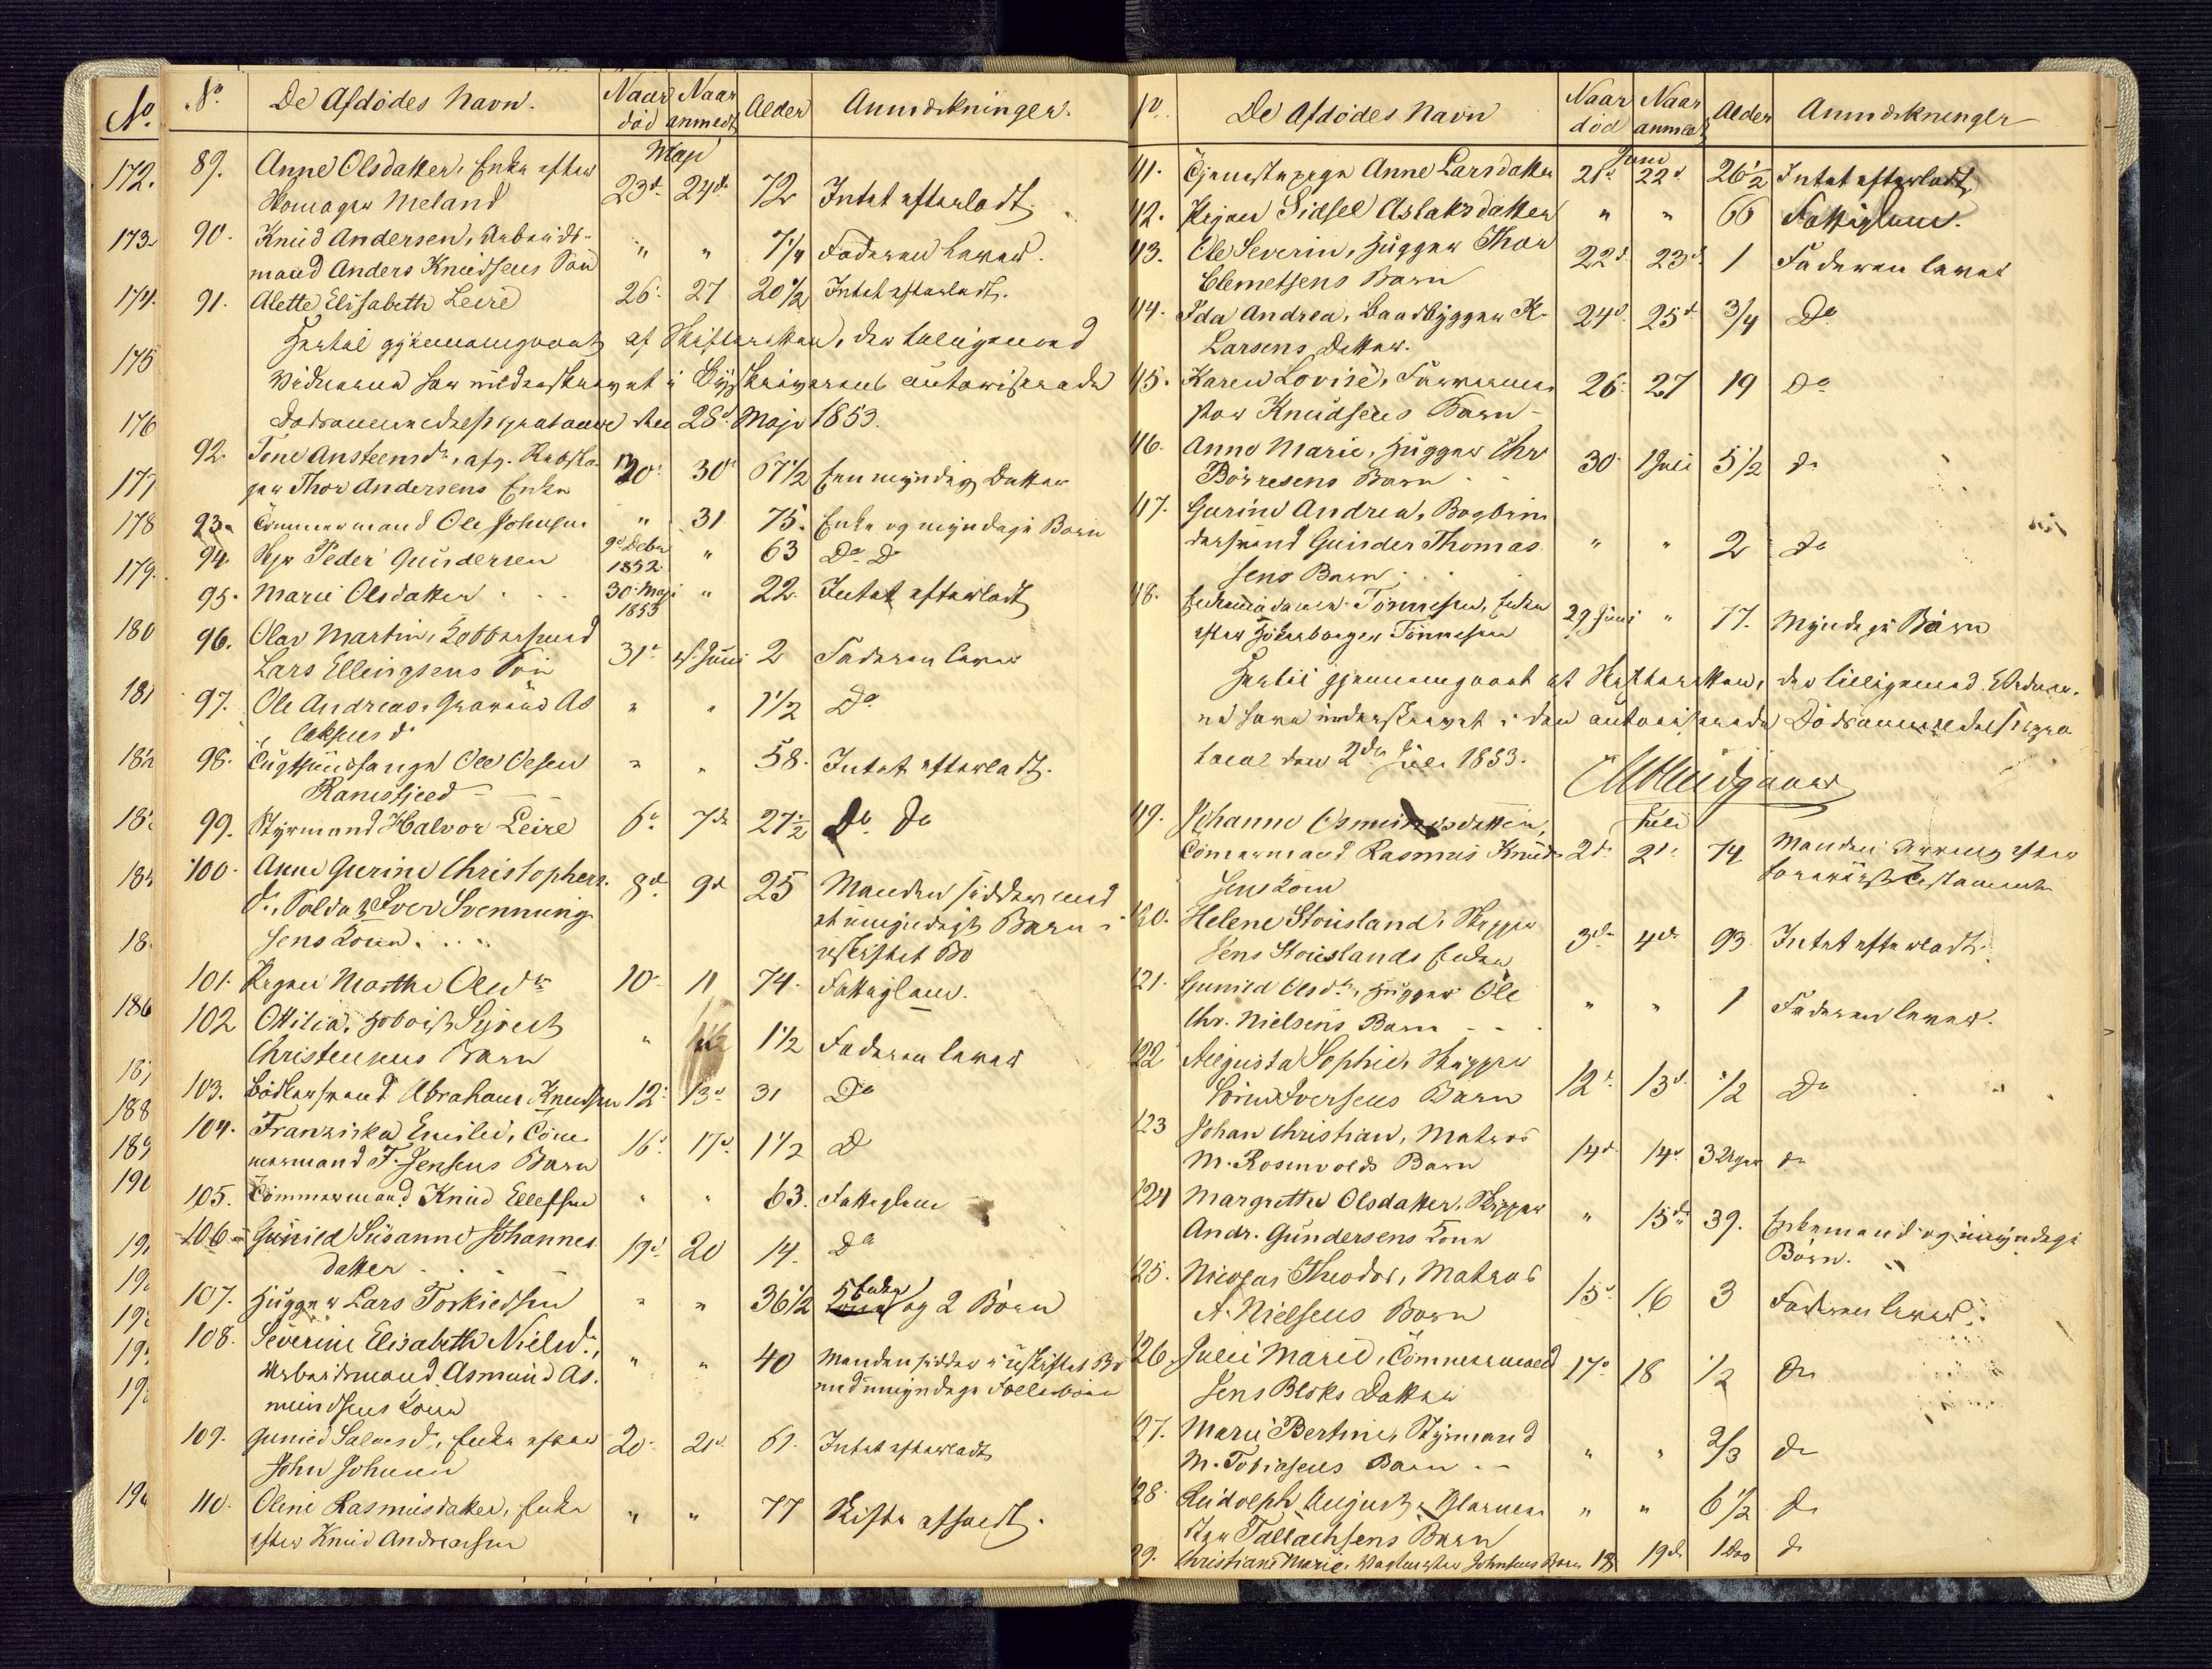 No. De Afdødes Navn. Naar død Naar anmeldt Alder Anmærkninger.
Maji
89. Anne Olsdatter, Enke efter
Homager Meland 23d. 24de 72 Intet efterladt.
90. Knud Andersen, Arbeids-
mand Anders Knudsens Søn " " 7/4 Faderen lever.
91. Alette Elisabeth Leire 26. 27 20 1/2 Intet efterladt.
Hertil gjennemgaaet af Skifteretten, der tilligemed
Vidnerne har underskrevet i Byskriverens autoriserede
Dødsanmeldelsesprotocol den 28d Maji 1853.
92. Tone Ansteensdr, afg. Rebsla-
ger Thor Andersens Enke 30 67 1/2 Een myndig Datter
93. Tømmermand Ole Johnsen " 31 75. Enke og myndige Børn
94. Skpr Peder Gundersen 9d Debr 1852 " 63 Do Do
95. Marie Olsdatter 30 Maji 1853 " 22. Intet efterladt
96. Olav Martin, Kobbersmed
Lars Ellingsens Søn 31d 1st Juni 2 Faderen lever
97. Ole Andreas, Graveur As
laksens d. " " 1 1/2 Do
98. Tugthuusfange Ole Olsen
Ramsfjeld " " 58. Intet efterladt.
99. Styrmand Halvor Leire 6d 7de 27 1/2 Do Do
100. Anne Gurine Christophers
dr, Soldat Iver Svenning
sens Kone 8d. 9d 25 Manden sidder med
et umyndigt Barn i
uskiftet Bo
101. Pigen Marthe Olsdr 10 11 74. Fattiglem.
102 Ottilia, Hoboist Syvert
Christensens Barn " 1 1/2 Faderen lever
103. Bødkersvend Abraham Knudsen 12 13d 31 Do
104. Franziska Emilie, Tøm-
mermand F. Jensens Barn 16d 17d. 1 1/2 D
105. Tømmermand Knud Ellefsen " " 63. Fattiglem
106 Gunild Susanne Johannes
datter 19d. 20 14. Do
107. Hugger Lars Torkildsen " " 36 1/2 Enke og 2 Børn
108. Severine Elisabeth Nielsdr,
Arbeidsmand Asmund As-
mundsens Kone " " 40 Manden sidder i uskiftet Bo
med umyndige Fællesbørn
109. Gunild Salvesdr, Enke efter
John Johnsen 20 21d. 61. Intet efterladt
110. Oline Rasmusdatter, Enke
efter Knud Andreassen " " 77 Skifte afholdt.
No. De Afdødes Navn Naar død Naar anmeldt Alder Anmærkninger
Juni
11. Tjenestepige Anne Larsdatter 21d. 22d 26 1/2 Intet efterladt
12. Pigen Sidsel Aslaksdatter " " 66 Fattiglem.
13. Ole Severin, Hugger Thor
Clemetsens Barn 22d. 23d. 1 Faderen lever
14. Ida Andrea, Baadbygger K.
Larsens Datter. 24d. 25d 3/4 Do
15. Karen Lovise, Farverme-
ster Knudsens Barn 26. 27 19 Do
16. Anne Marie, Hugger Chr
Børresens Barn 30 1 Juli 5 1/2 do
17. Gurine Andrea, Bogbin
dersvend Gunder Thomas
sens Barn " " 2 do
18. Tønnesen, Enke
efter Tønnesen 29 Juni " 77. Myndige Børn
Hertil gjennemgaaet af Skifteretten, der tilligemed Vidner-
ne have underskrevet i den autoriserede Dødsanmeldelsespro
tocol den 2den Juli 1853.
Juli
19. Johanne Osmundsdatter,
Tømmermand Rasmus Knud-
sens Kone 2d. 2d. 74 Manden Arving efter
Testamente
120. Helene Stousland, Skipper
Jens Stouslands Enke 3d 4d 93. Intet efterladt.
121. Gunild Olsdr, Hugger Ole
Chr. Nielsens Barn " " 1 Faderen lever.
122 Augusta Sophie, Skipper
Iversens Barn 12d. 13d. 1/2 Do
123 Johan Christian, Matros
M. Rosenvolds Barn 14d 14d 3 Uger do
124 Margrethe Olsdatter, Skipper
Andr. Gundersens Kone " 15de 39. Enkemand og umyndige
Børn.
25. Nicolai Theodor, Matros
A. Nielsens Barn 15d. 16 3 Faderen lever.
26. Julie Marie, Tømmermand
Jens Bloks Datter 17d 18 1/2 do
27. Marie Bertine, Styrmand
M. Tobiasens Barn " " 2/3 do
28 Rudolph August, Glarme-
ster Tallachsens Barn " " 6 1/2 do
29. Christiane Marie, Johnsens Barn 18 19de do
172.
173
174.
175
176
177
178
179.
180
181
182
186
188
189
190